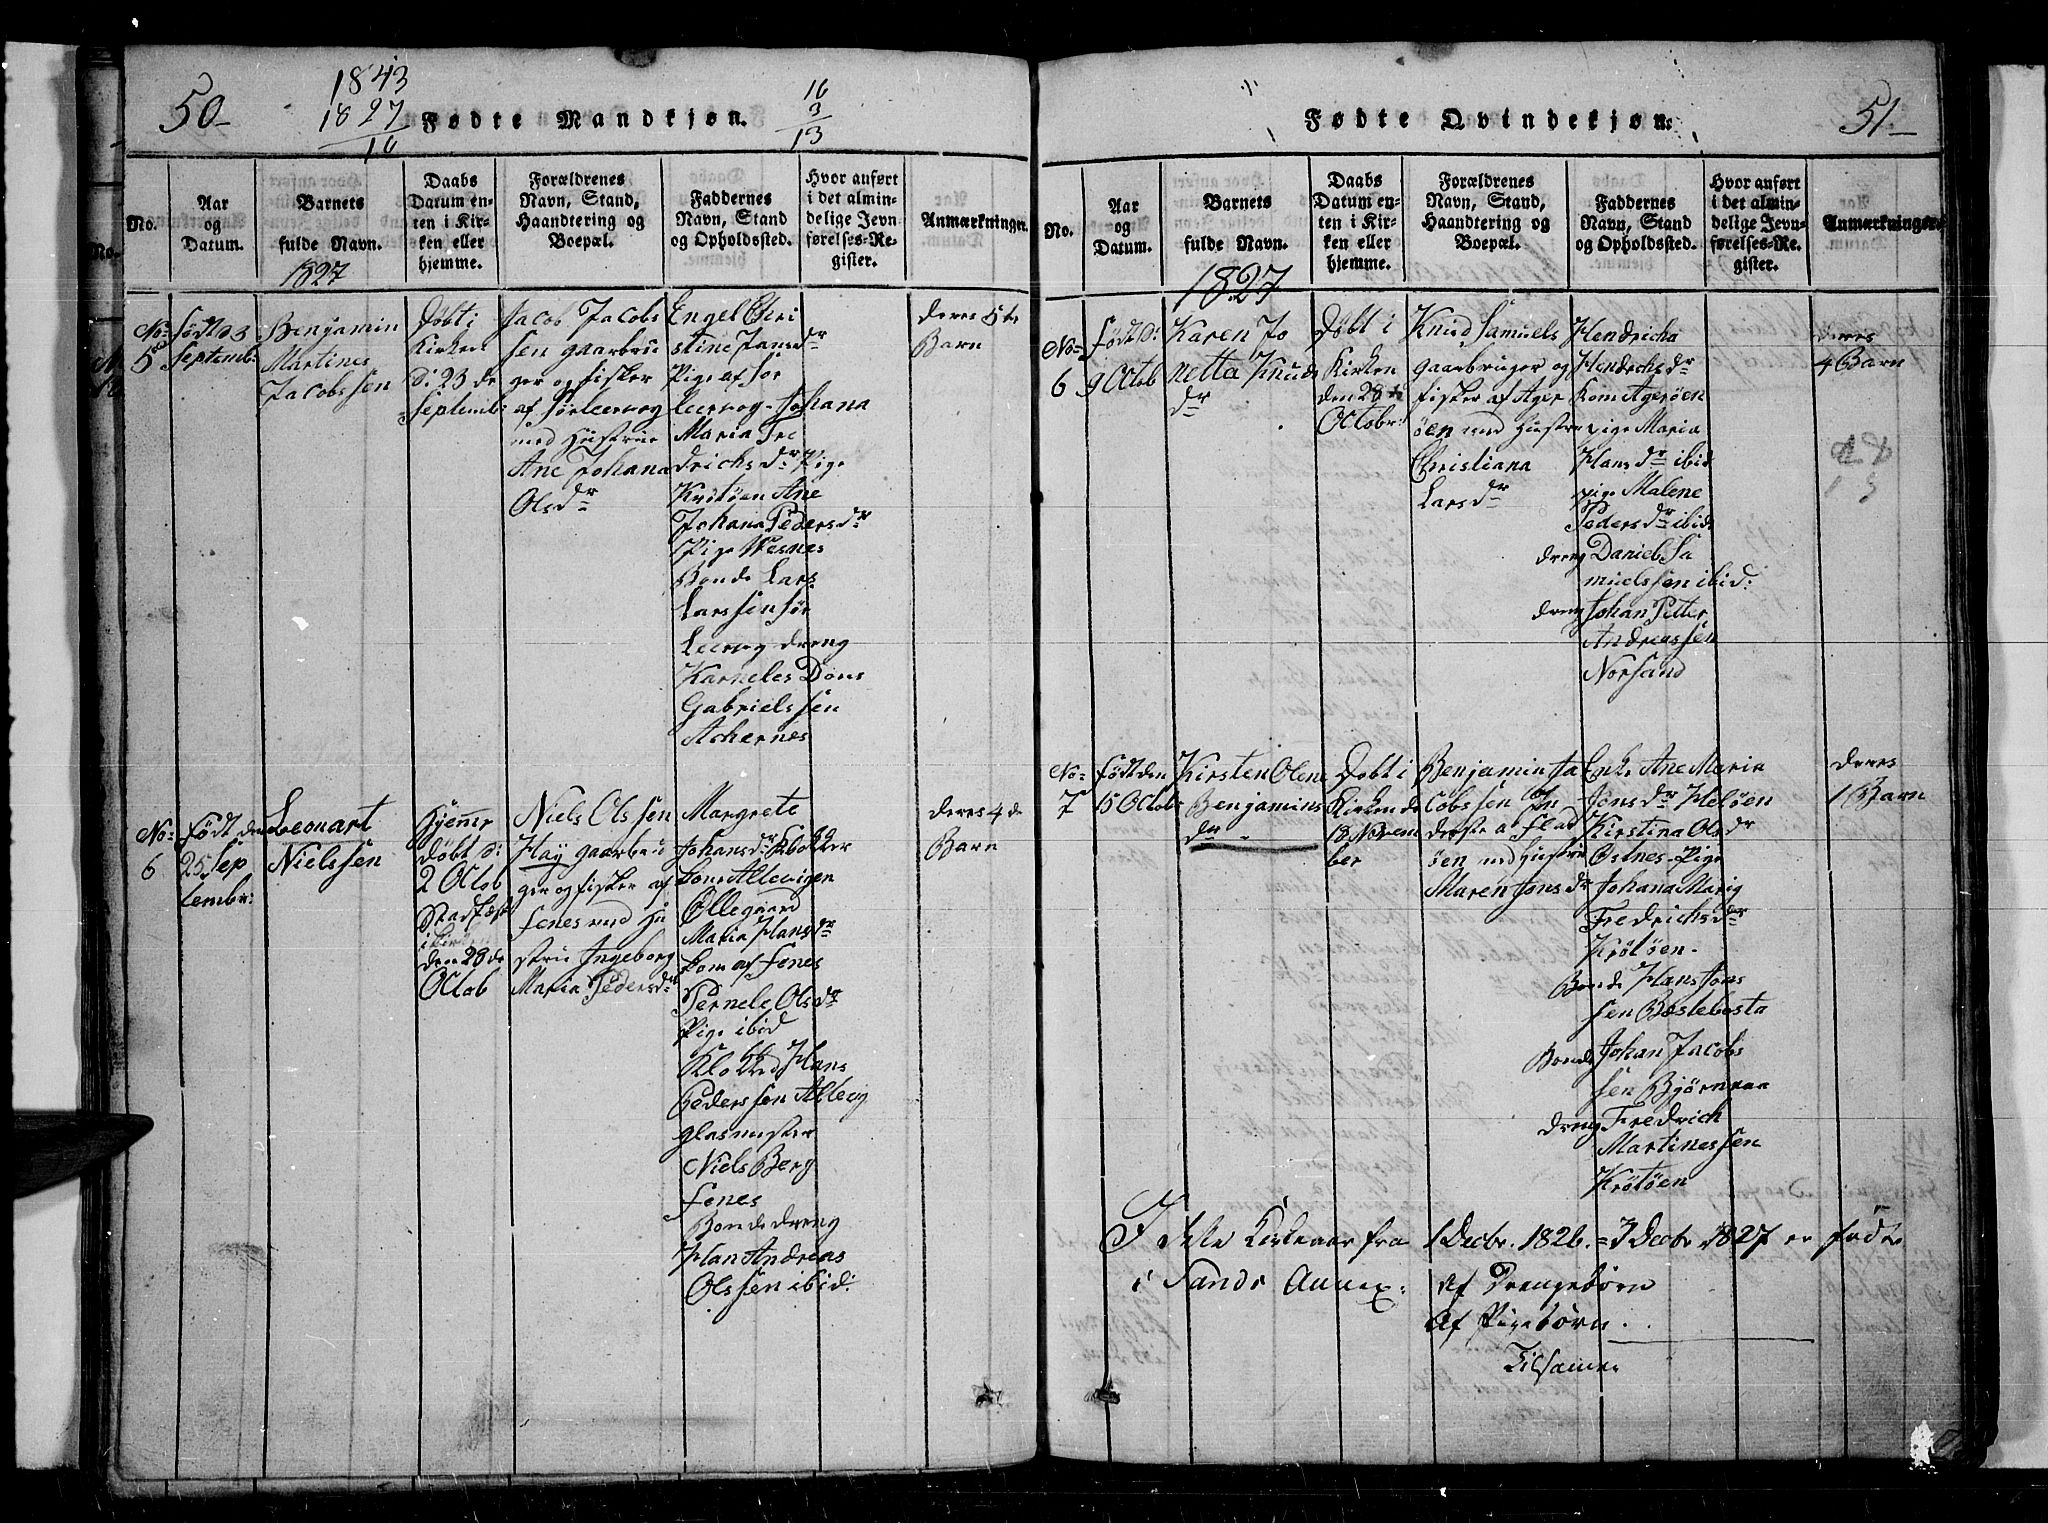 50
1843
1827
16
Fødte Mandkjøn.
16
3
13
No.
Aar
og
Datum.
Barnets
fulde Navn.
Daabs
Datum en-
ten i Kir-
ken eller
hjemme.
Forældrenes
Navn, Stand,
Haandtering og
Boepæl.
Faddernes
Navn, Stand
og Opholdssted.
Hvor anført
i det almin-
delige Jevn-
førelses-Re-
gister.
Anmærkninger.
1827
No
5
født d 3
Septemb:
Benjamin
Martines
Jacobssen
Døbt i
Kirken
Di 23 de
Septembr
Jacob Jacobs
sen gaarbru
ger og fisker
af Sørleervog
med Hustrue
Ane Johana
Olsdr
Engel Chri
stine Jansdr
Pige af Sør
leervog Johana
Maria Fre
drichsdr Pige
Krötöen Ane
Johana Pedersdr
Pige Wesnes
Bonde Lars
Larssen Sør
Leervog dreng
Karneles Dons
Gabrielssen
Achernes
deres 5te
Barn
No
6
født den
25 Sep
tembr:
Leonart
Nielssen
Hjemme
døbt d:
2 Octob
Stadfæst
i Kirken
den 28 de
Octob
Niels Olssen
Høy gaarbru
ger og fisker af
Fenes med Hu
strue Ingeborg
Maria Pedersdr
Margrete
Johansdr Klokker
kone Allevigen
Øllegaard
Maria Hansdr
kone af Fenes
Pernele Olsdr
Pige ibid
Klokker Hans
Pederssen Allevig
glasmester
Niels Berg
Fenes
Bonde dreng
Han Andreas
Olssen ibid:
deres 4 de
Barn
Fødte Qvindekjøn.
51
No.
Aar
og
Datum.
Barnets
fulde Navn.
Daabs
Datum en-
ten i Kir-
ken eller
hjemme.
Forældrenes
Navn, Stand,
Haandtering og
Boepæl.
Faddernes
Navn, Stand
og Opholdssted.
Hvor anført
i det almin-
delige Jevn-
førelses-Re-
gister.
Anmærkninger.
1827
No
6
født d:
9 Octob
Karen Jo
netta Knuds
dr
Døbt i
Kirken
den 28 de
Octobr:
Knud Samuels
gaarbruger og
fisker af Ager
öen med Hustru
Christiana
Larsdr
Hendricka
Hendrichsdr
Kone Ageröen
pige Maria
Hansdr ibid
pige Malene
Pedersdr ibid:
dreng Daniel Sa
muelssen ibid:
dreng Johan Petter
Andreassen
Norsand
deres
4 Barn
No
7
født den
15 Octob
Kirsten Olene
Benjamins
dr
Døbt i
Kirken de
18 Novem
ber
Benjamin Ja
cobssen
af Flad
öen med Hustru
Maren Jonsdr
Enke Ane Maria
Jonsdr Helöen
Kirstina Olsdr
Ostnes Pige
Johana Maria
Fredrichsdr
Krötöen
Bonde Hans Jons
sen Bæslebosta
Bonde Johan Jacobs
sen Bjørnraa
dreng Fredrich
Martinessen
Krötöen
deres
1 Barn
I dette Kirkeaar fra 1 Decbr. 1826 = 3 Decbr 1827 er fødte
i Sands Annex: Af Drengebørn
Af Pigebørn
Tilsamen